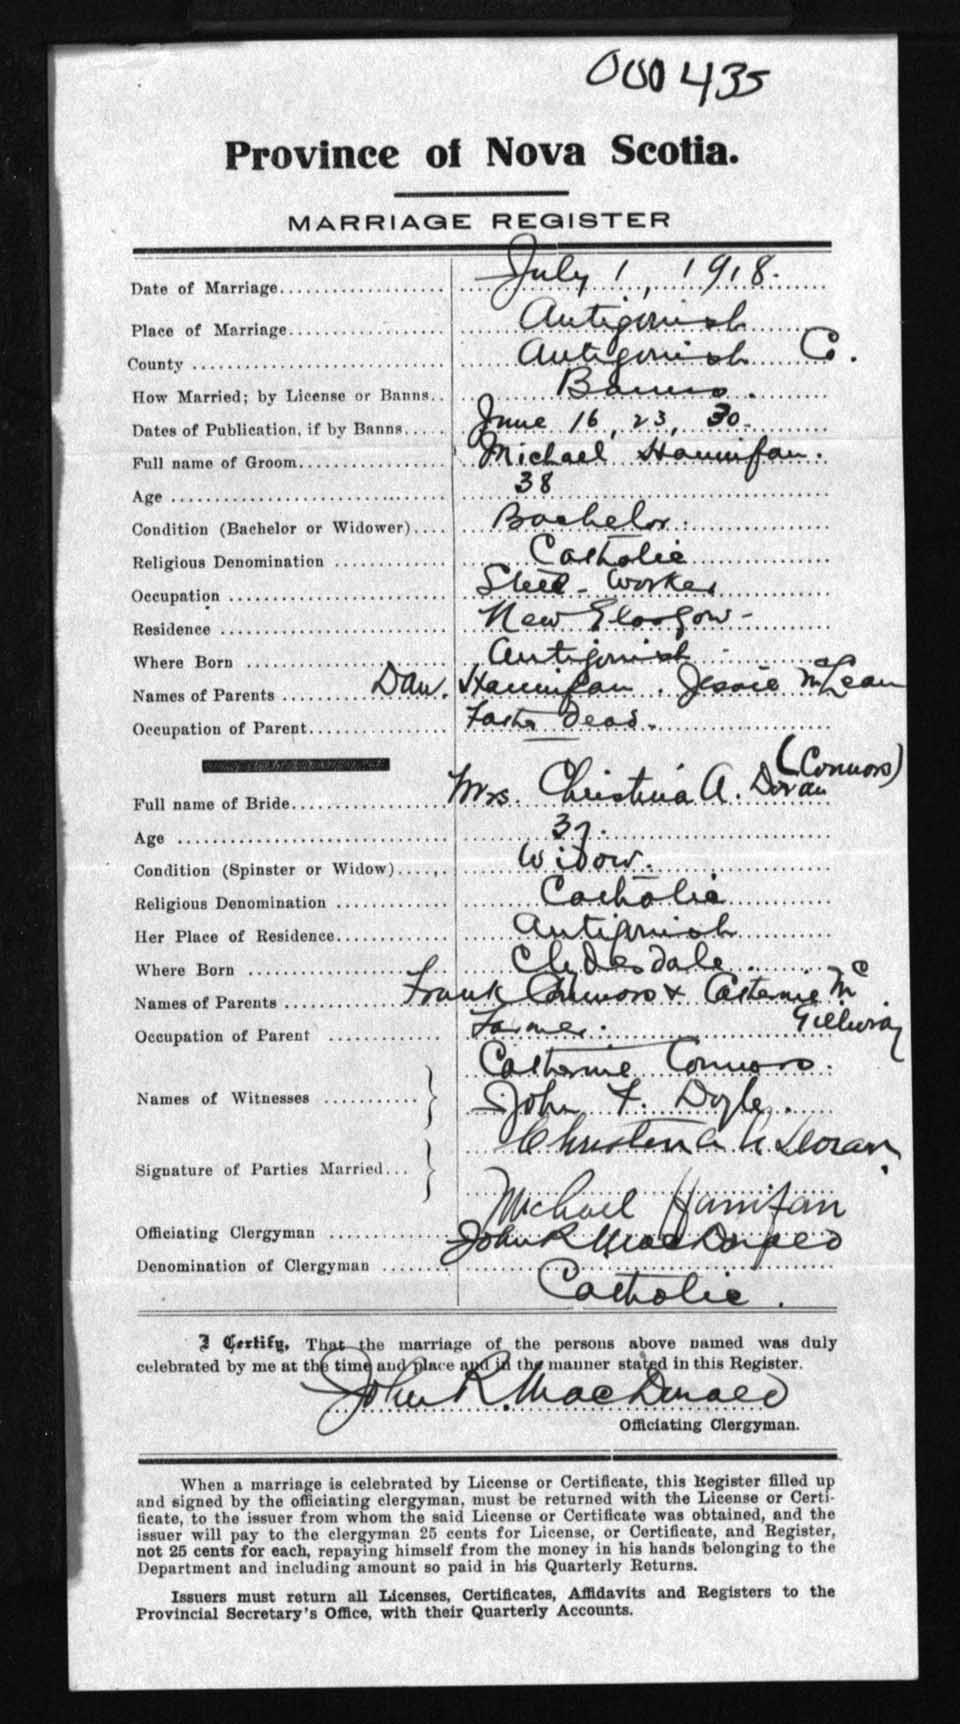 000435
Province of Nova Scotia.
MARRIAGE REGISTER
Date of Marriage July 1, 1918.
Place of Marriage Antigonish
County Antigonish Co.
How Married; by License or Banns Banns.
Dates of Publication, if by Banns June 16, 23, 30.
Full name of Groom Michael Hannifan.
Age 38
Condition (Bachelor or Widower) Bachelor.
Religious Denomination Catholic
Occupation Steel-Worker
Residence New Glasgow-
Where Born Antigonish
Names of Parents Dan. Hannifan. Jessie McLean
Occupation of Parent Father Dead.
Full name of Bride Mrs. Christina A. Doran (Connors)
Age 37.
Condition (Spinster or Widow) Widow.
Religious Denomination Catholic
Her Place of Residence Antigonish
Where Born Clydesdale.
Names of Parents Frank Connors & Catherine Mc
Gillivray
Occupation of Parent Farmer.
Names of Witnesses Catherine Connors.
John F. Doyle.
Signature of Parties Married Christena A Doran.
Michael Hanifan
Officiating Clergyman John R MacDonald
Denomination of Clergyman Catholic.
I Certify, That the marriage of the persons above named was duly
celebrated by me at the time and place and in the manner stated in this Register.
John R. MacDonald
Officiating Clergyman.
When a marriage is celebrated by License or Certificate, this Register filled up
and signed by the officiating clergyman, must be returned with the License or Certi-
ficate, to the issuer from whom the said License or Certificate was obtained, and the
issuer will pay to the clergyman 25 cents for License, or Certificate, and Register,
not 25 cents for each, repaying himself from the money in his hands belonging to the
Department and including amount so paid in his Quarterly Returns.
Issuers must return all Licenses, Certificates, Affidavits and Registers to the
Provincial Secretary's Office, with their Quarterly Accounts.